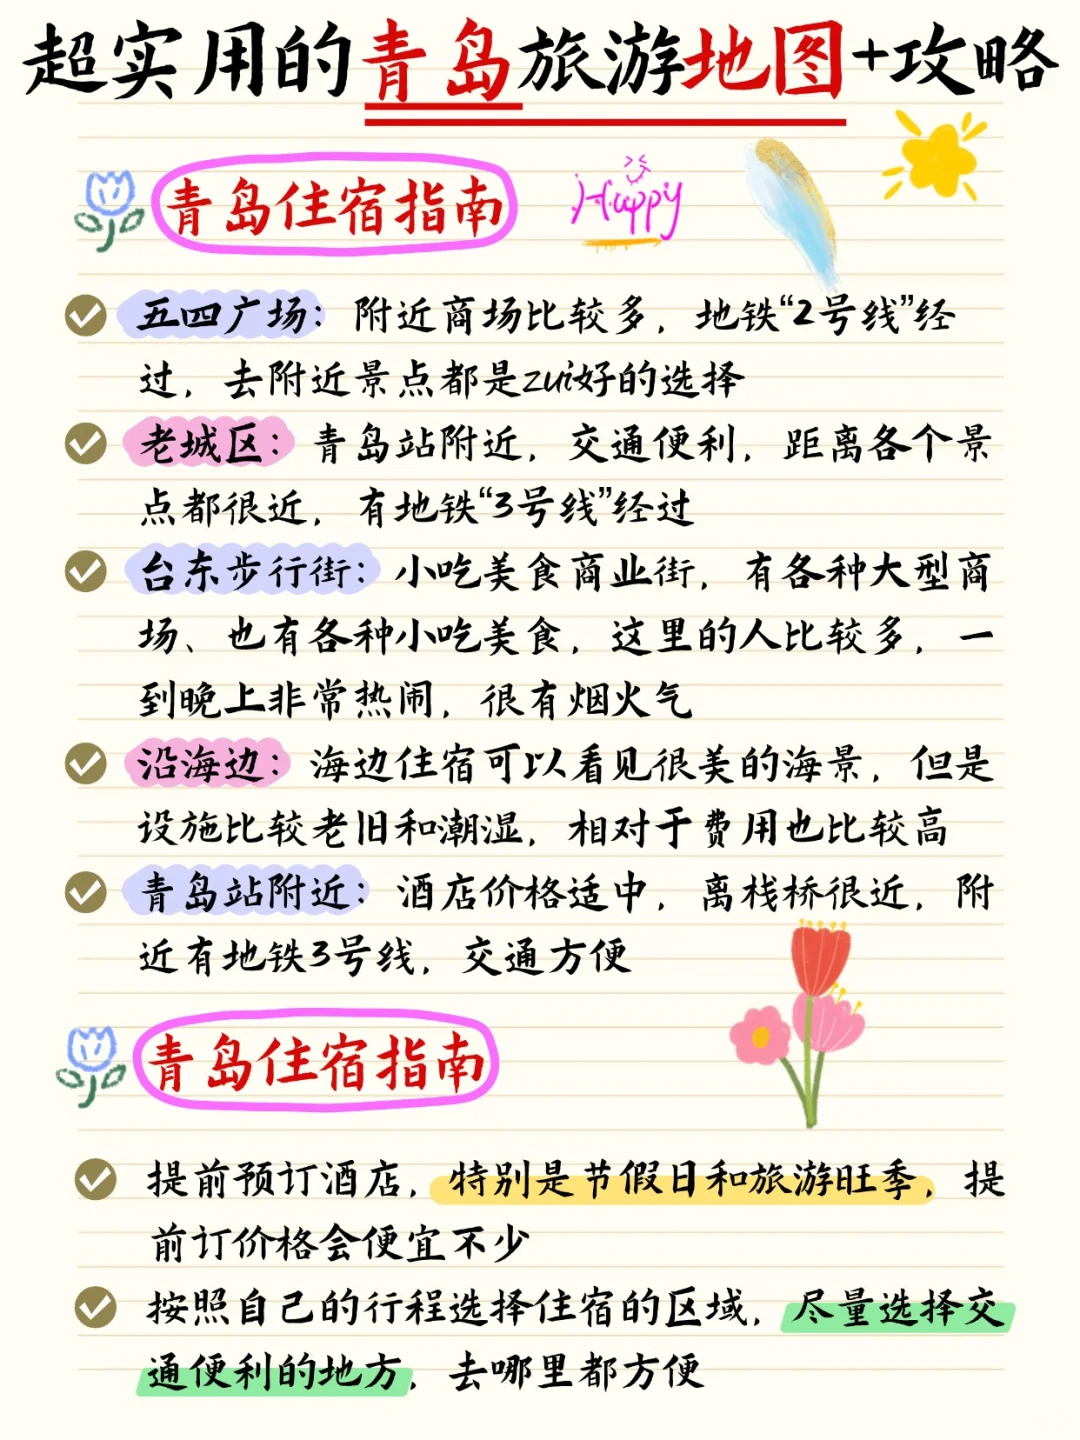 超实用的青岛旅游地图+攻略
青岛住宿指南
Happy
五四广场：附近商场比较多，地铁“2号线”经
过，去附近景点都是zui好的选择
老城区：青岛站附近，交通便利，距离各个景
点都很近，有地铁“3号线”经过
台东步行街：小吃美食商业街，有各种大型商
场、也有各种小吃美食，这里的人比较多，一
到晚上非常热闹，很有烟火气
沿海边：海边住宿可以看见很美的海景，但是
设施比较老旧和潮湿，相对于费用也比较高
青岛站附近：酒店价格适中，离栈桥很近，附
近有地铁3号线，交通方便
青岛住宿指南
提前预订酒店，特别是节假日和旅游旺季，提
前订价格会便宜不少
按照自己的行程选择住宿的区域，尽量选择交
通便利的地方，去哪里都方便